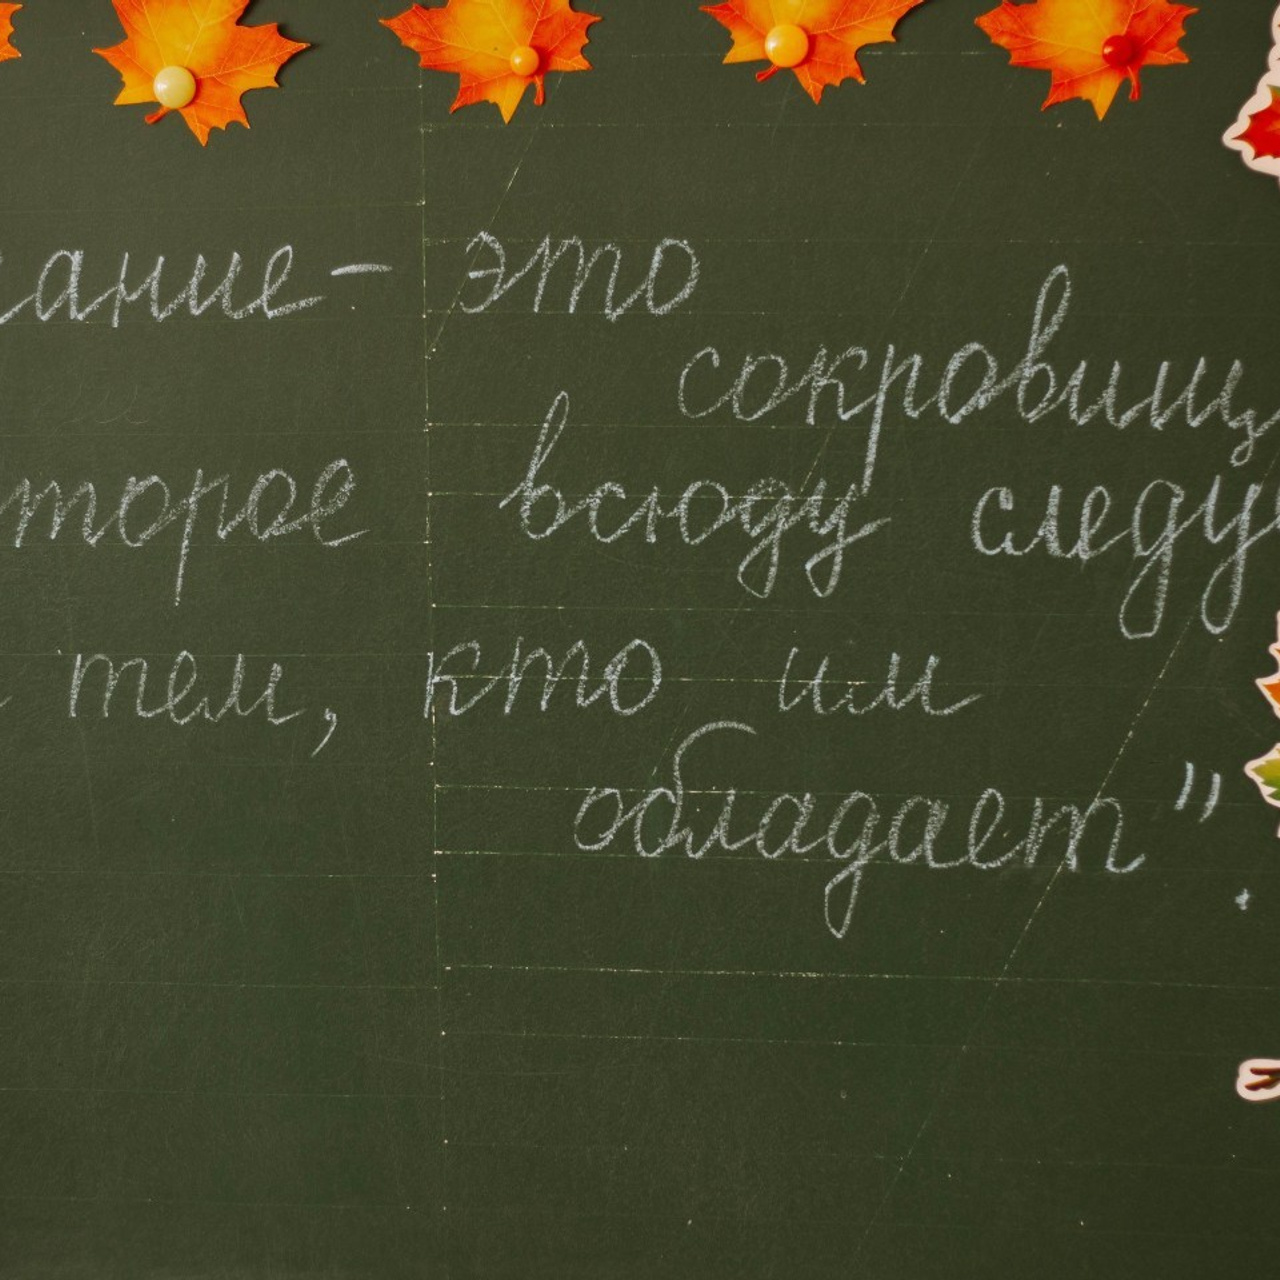 сание - это
сокровищ
торое всюду следу
тем, кто им
обладает"
.